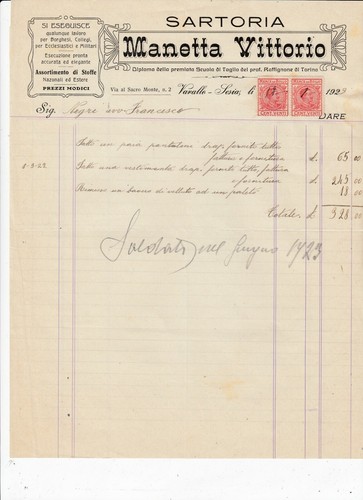 SARTORIA
Manetta Vittorio
Diploma della premiata Scuola di Taglio del prof. Raffignone di Torino
SI ESEGUISCE
qualunque lavoro
per Borghesi, Collegi,
per Ecclesiastici e Militari
Esecuzione pronta
accurata ed elegante
Assortimento di Stoffe
Nazionali ed Estere
PREZZI MODICI
Via al Sacro Monte, n. 2 Varallo-Sesia, li 1923
Sig. Negri avv Francesco
DARE
Fatto un paio pantaloni drap. pronto tutto
fattura e fornitura £. 65 00
Fatto una vestimenta drap. pronto tutto, fattura
e fornitura £. 245 00
un bavero di velluto ad un paletò 18 00
Totale £ 328 00
Saldato nel Giugno 1923